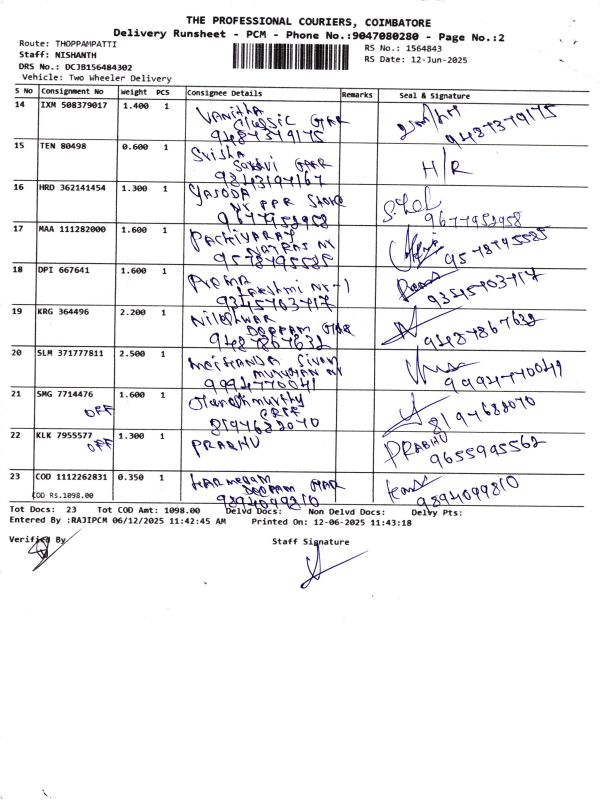 THE PROFESSIONAL COURIERS, COIMBATORE
Delivery Runsheet - PCM - Phone No.:9047080280 - Page No.:2
Route: THOPPAMPATTI
RS No.: 1564843
Staff: NISHANTH
RS Date: 12-Jun-2025
DRS No.: DCJB156484302
Vehicle: Two Wheeler Delivery
S No Consignment No Weight PCS Consignee Details Remarks Seal & Signature
14 IXM 508379017 1.400 1 VANitha
9487379175 9487379175
15 TEN 80498 0.600 1 Srisha H/R
9843197167
16 HRD 362141454 1.300 1 YASODA
9677952958 9677952958
17 MAA 111282000 1.600 1
9578795585 9578795585
18 DPI 667641 1.600 1 Prema
Lakshmi Nr-1
9345703717 9345703717
19 KRG 364496 2.200 1 Nileshwar
9487867632 9487867632
20 SLM 371777811 2.500 1
9994770041 9994770041
21 SMG 7714476 1.600 1
OFF
8197682070 8197682070
22 KLK 7955577 1.300 1 PRABHU PRABHU
OFF 9655995562
23 COD 1112262831 0.350 1
COD Rs.1098.00 9894099810 9894099810
Tot Docs: 23 Tot COD Amt: 1098.00 Delvd Docs: Non Delvd Docs: Delvy Pts:
Entered By :RAJIPCM 06/12/2025 11:42:45 AM Printed On: 12-06-2025 11:43:18
Verified By Staff Signature